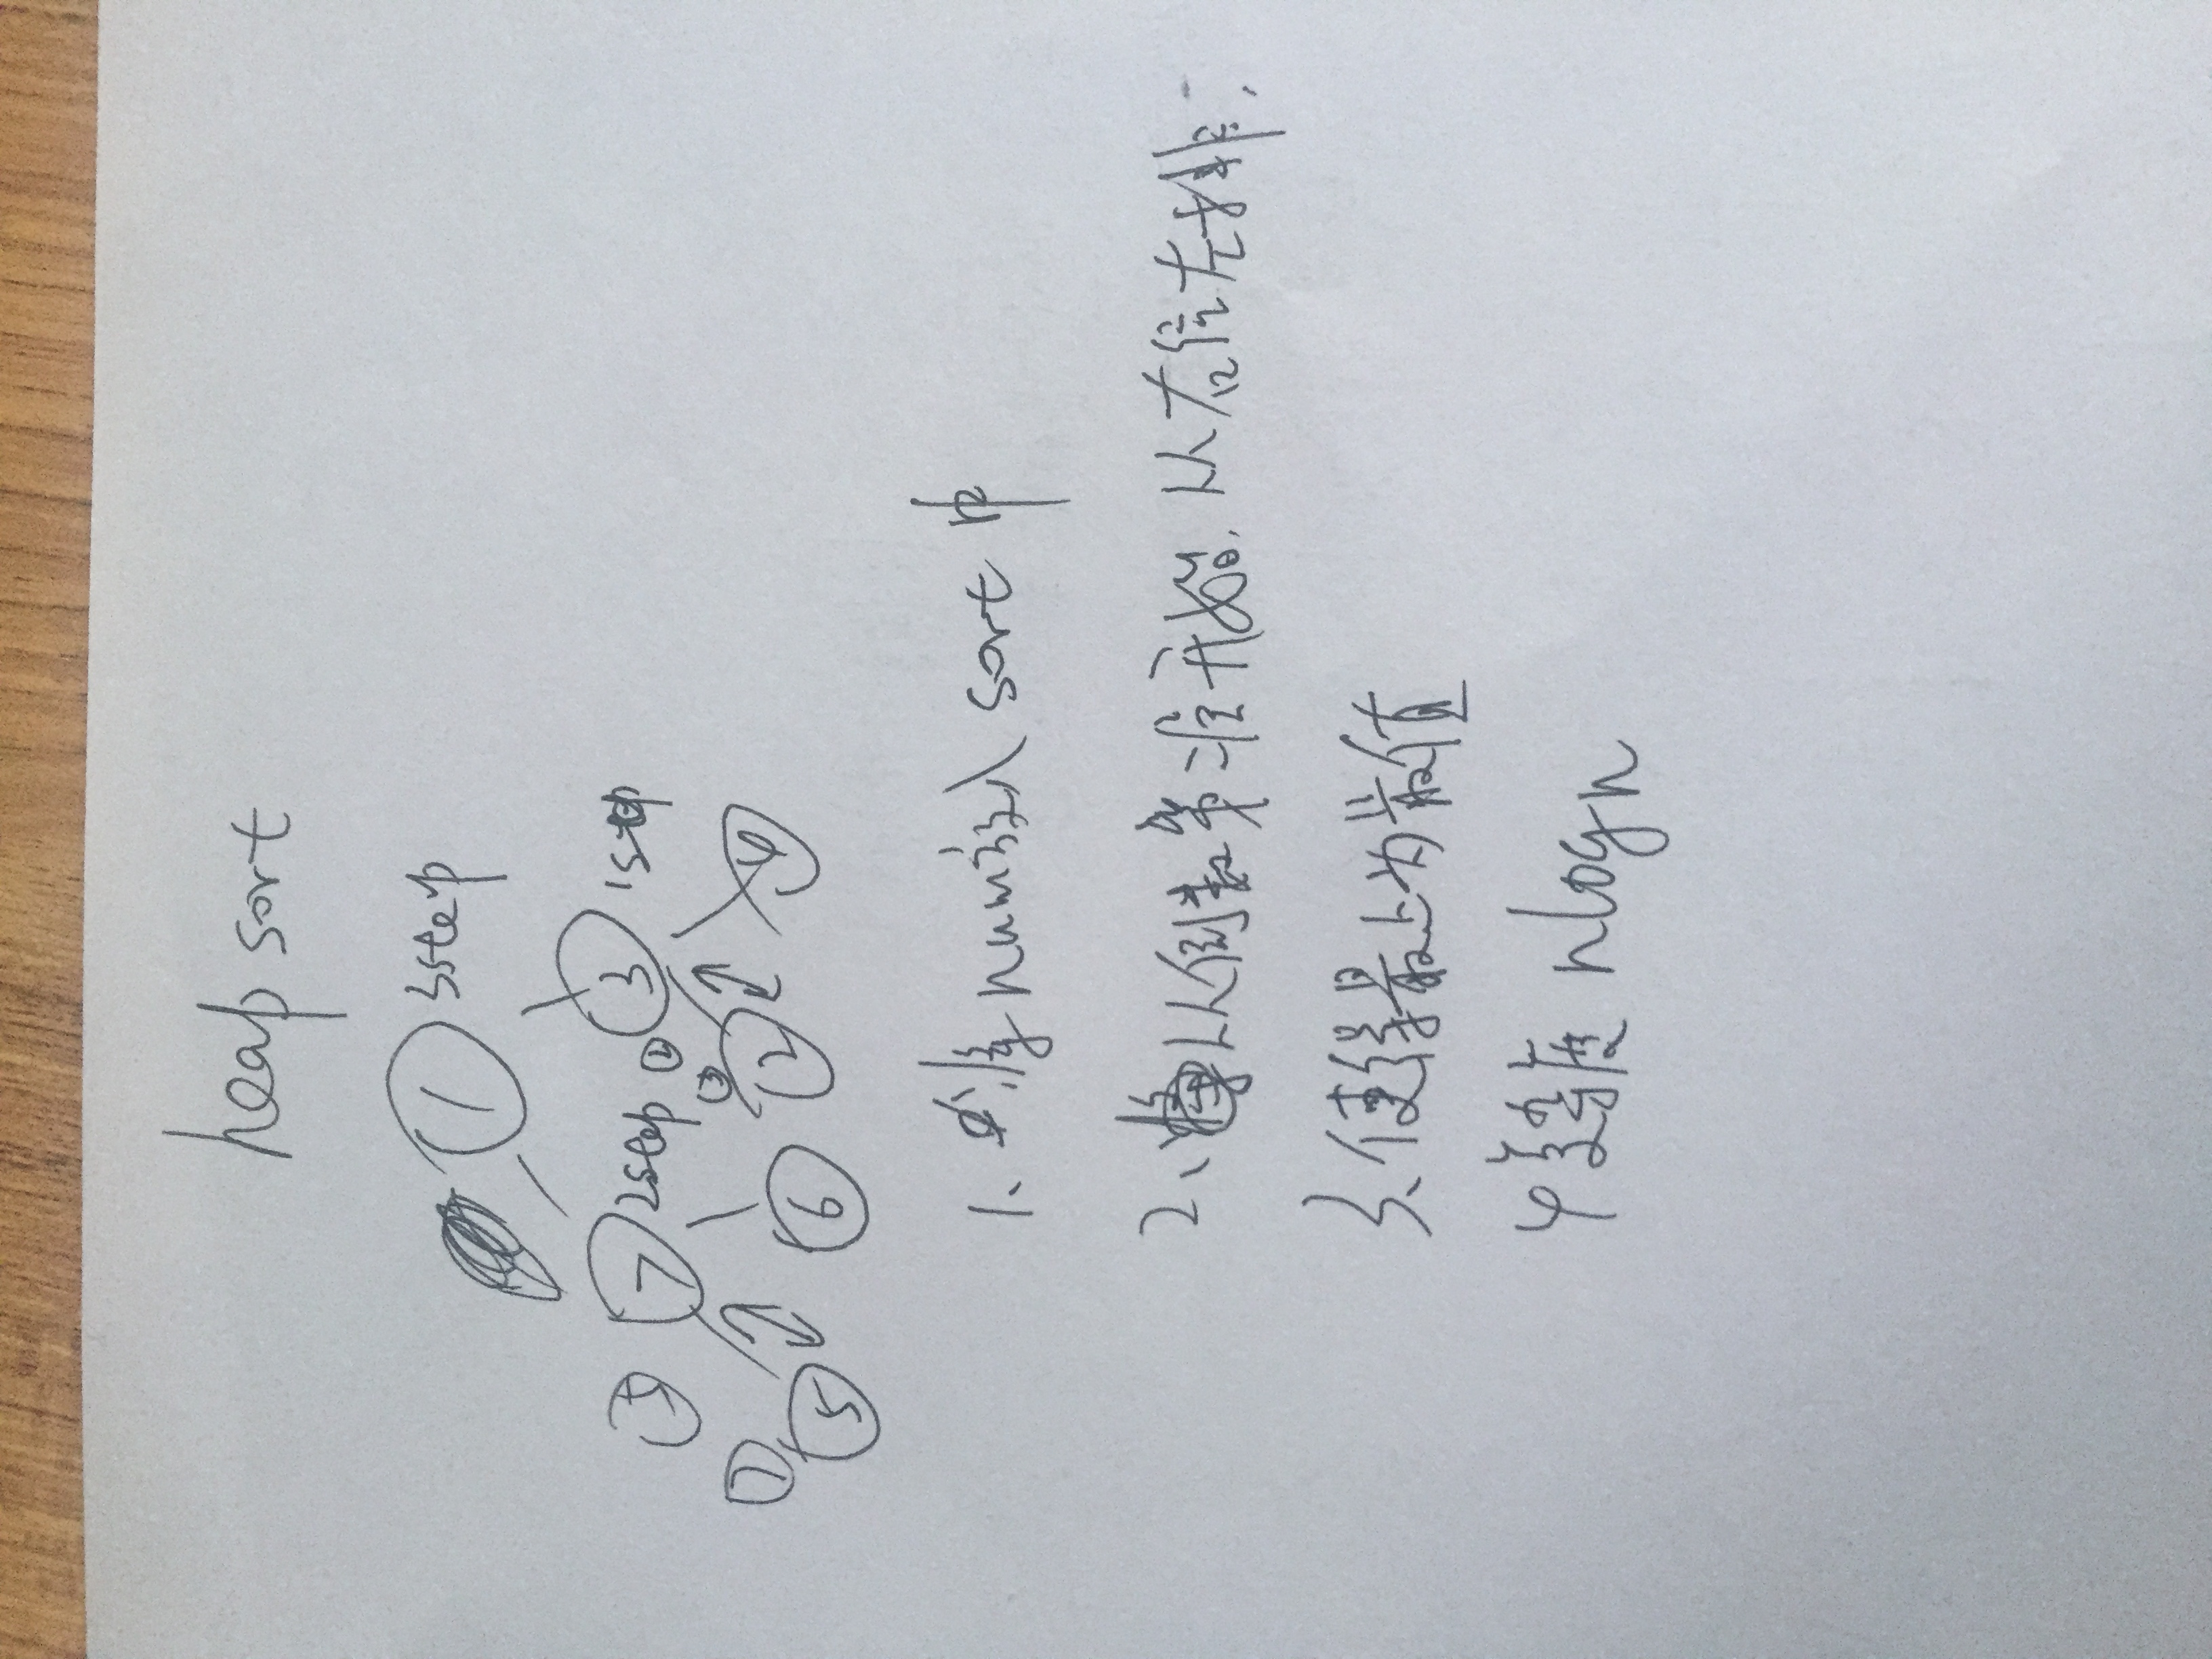 heap sort
1 3step
5 7 2step 2 3 1step
7 3
5 6 2 4
1、将num放入 sort 中
2、从倒数第二层开始.从右往左排;
3、使得最上为最值
4 复杂度 nlogn